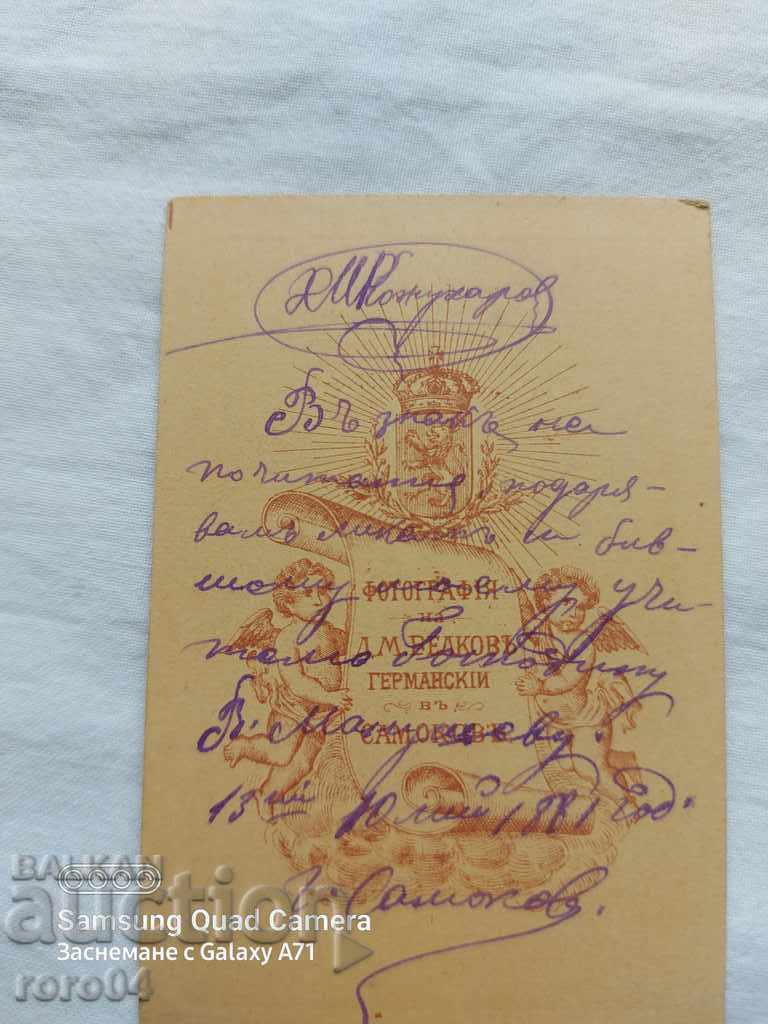 ХМКожухаров
Въ знакъ на
почитание, подаря-
вамъ ликътъ си бив-
шому моему учи-
телю Господину
В. Манчеву.
13ий Юлий 1881 год:
Г. Самоков.
ФОТОГРАФИЯ
на
Д. М. ВЕЛКОВЪ
ГЕРМАНСКІЙ
ВЪ
САМОКОВЪ
BALKAN
auction
roro04
Samsung Quad Camera
Заснемане с Galaxy A71